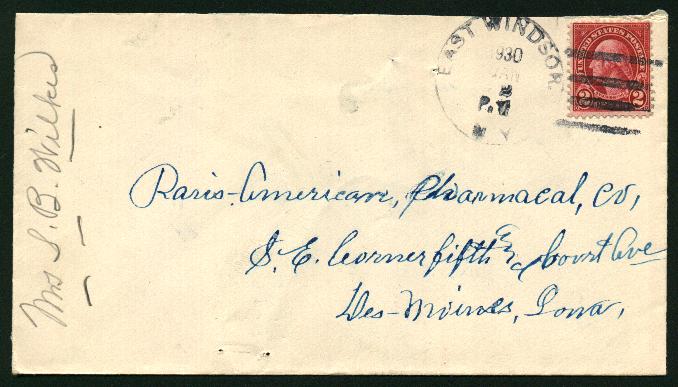 Mrs S. B. Wilkes
EAST WINDSOR
1930
JAN
2
P.M
N Y
UNITED STATES POSTAGE
2 2
Paris-American, Pharmacal, Co,
S. E. Corner fifth & Court Ave
Des-Moines, Iowa,